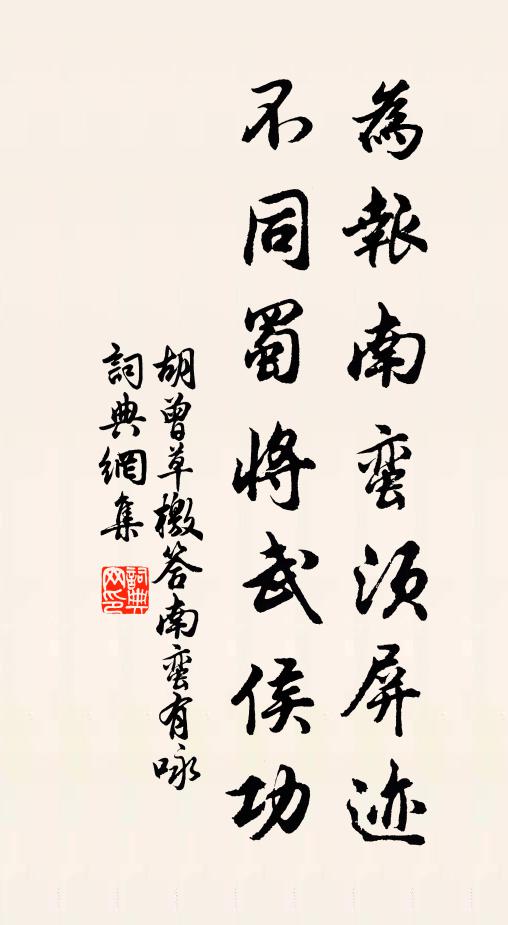 為報南蛮須屏迹
不同蜀將武侯功
胡曾草檄答南蛮有咏
詞典網集
詞典
网印